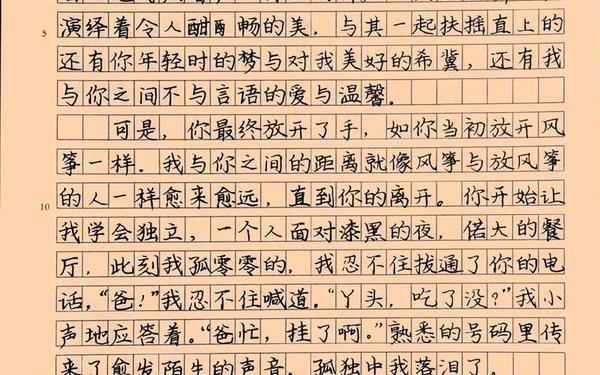 5 演绎着令人酣畅的美，与其一起扶摇直上的
还有你年轻时的梦与对我美好的希冀，还有我
与你之间不与言语的爱与温馨。
可是，你最终放开了手，如你当初放开风
筝一样。我与你之间的距离就像风筝与放风筝
10 的人一样愈来愈远，直到你的离开。你开始让
我学会独立，一个人面对漆黑的夜，偌大的餐
厅，此刻我孤零零的，我忍不住拔通了你的电
话，“爸！”我忍不住喊道。“丫头，吃了没？”我小
声地应答着。“爸忙，挂了啊。”熟悉的号码里传
来了愈发陌生的声音。孤独中我落泪了。